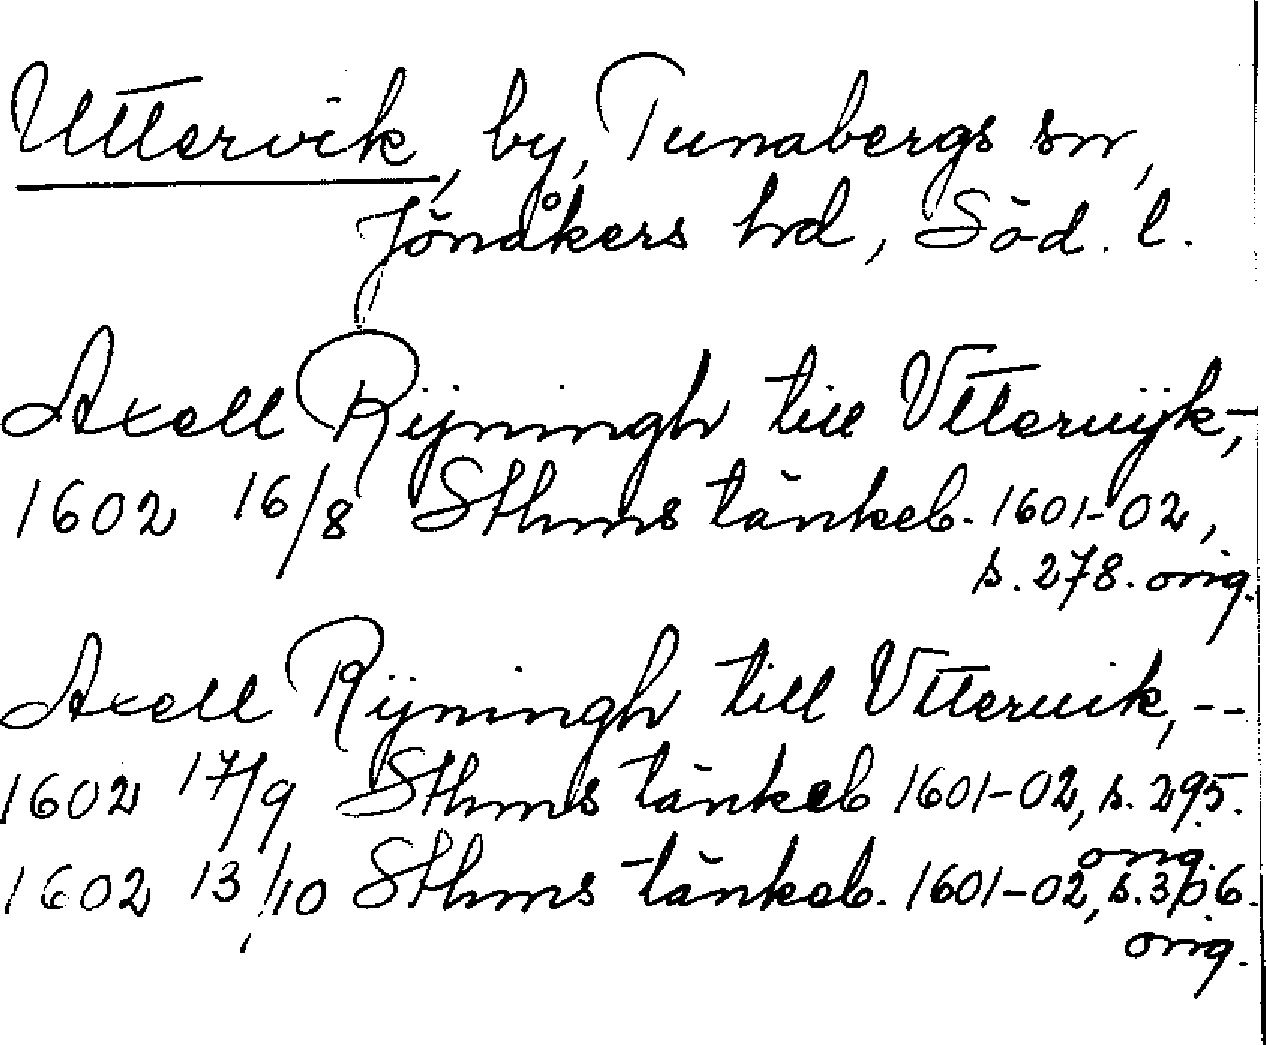 Uttervik, by, Tunabergs sn,
Jönåkers hd, Söd. l.
Axell Rijningh till Vtteruijk,-
1602 16/8 Sthms tänkeb. 1601-02,
s. 278. orig.
Axell Rijningh till Vtteruik, --
1602 17/9 Sthms tänkeb 1601-02, s. 295.
orig.
1602 13/10 Sthms tänkeb. 1601-02, s. 306.
orig.